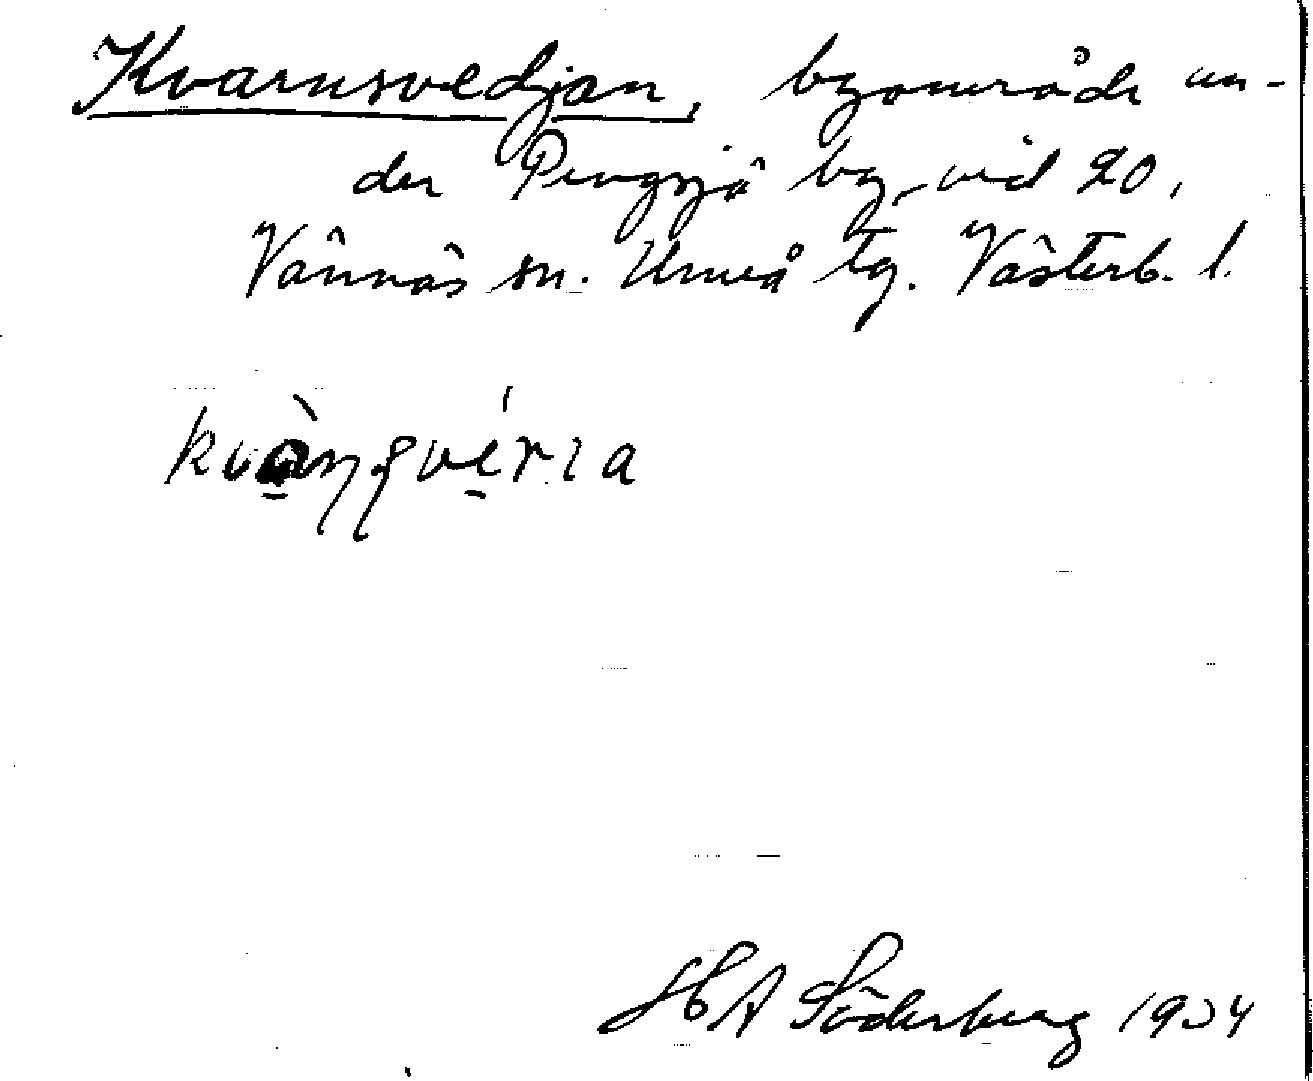 Kvarnsvedjan, byområde un-
der Pengsjö by, vid 20,
Vännäs sn. Umeå tg. Västerb. l.
H A Söderberg 1934